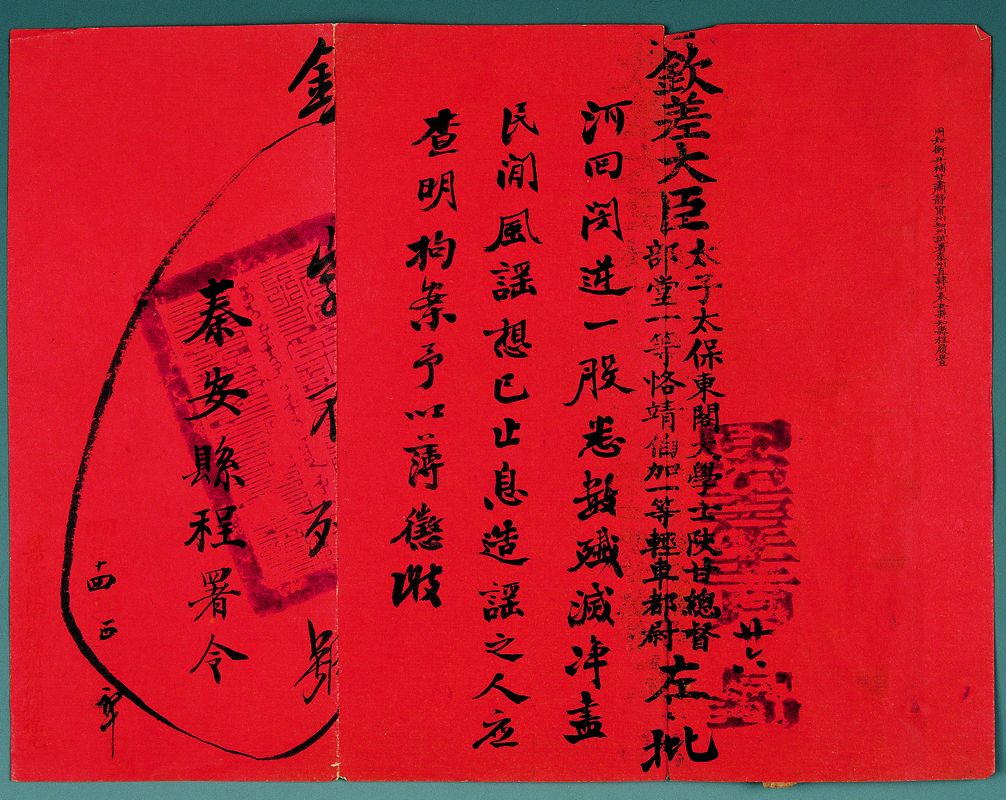 同知銜升補甘肅靜寧州知州試署秦州直隸州秦安縣知縣程履豐
欽差大臣
太子太保東閣大學士陝甘總督
部堂一等恪靖伯加一等輕車都尉
左批
廿六
河囘進一股悉數殲滅净盡
民间風謡想已止息造謡之人应
查明拘案予以薄懲繳
秦安縣程署令
十四
正